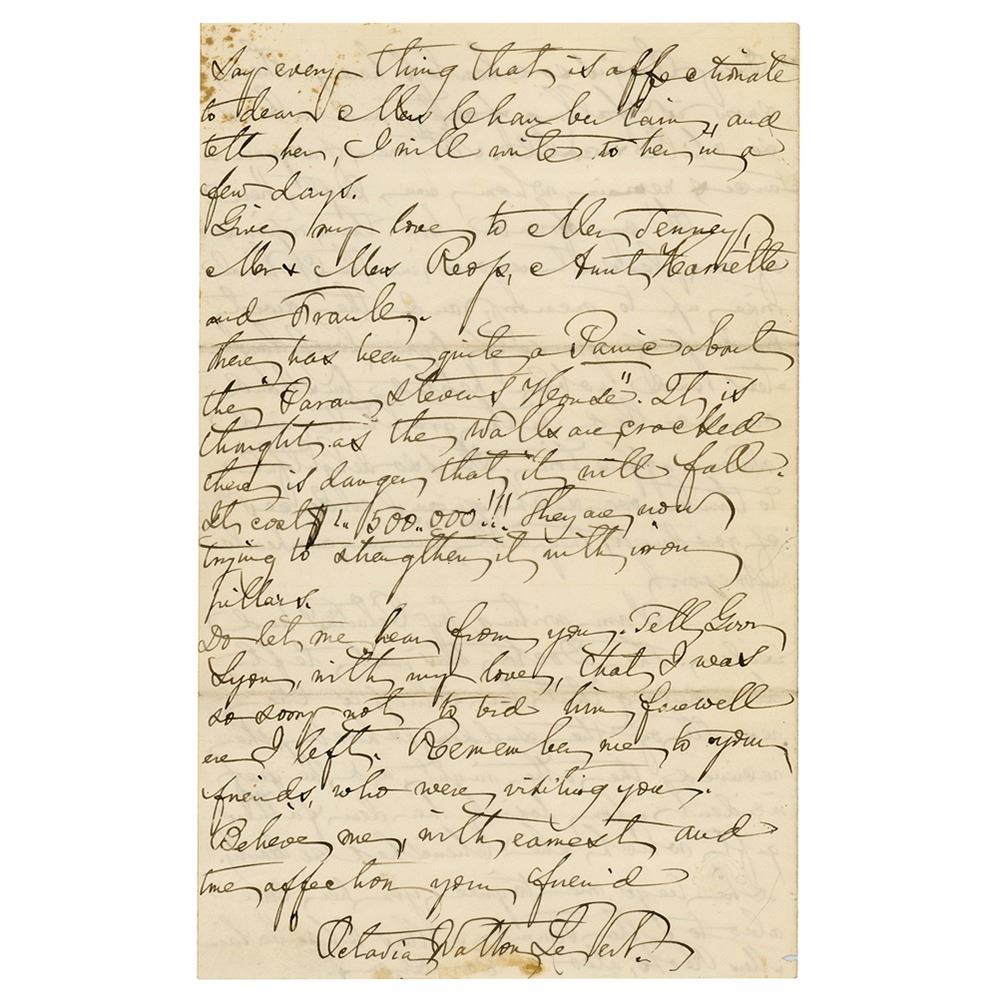 Say every thing that is affectionate
to dear Mrs Chamberlain, and
tell her, I will write to her in a
few days.
Give my love to Mr Tenney,
Mr & Mrs Reop, Aunt Harriette
and Frank.
there has been quite a Panic about
the "Paran Stevens House". It is
thought as the walls are cracked
there is danger that it will fall.
It cost $1..500..000!!! They are now
trying to strengthen it with iron
pillars.
Do let me hear from you. Tell Govr
Lyon, with my love, that I was
so sorry not to bid him farewell
ere I left. Remember me to your
friends, who were visiting you.
Believe me, with earnest and
true affection your friend
Octavia Walton Le Vert.